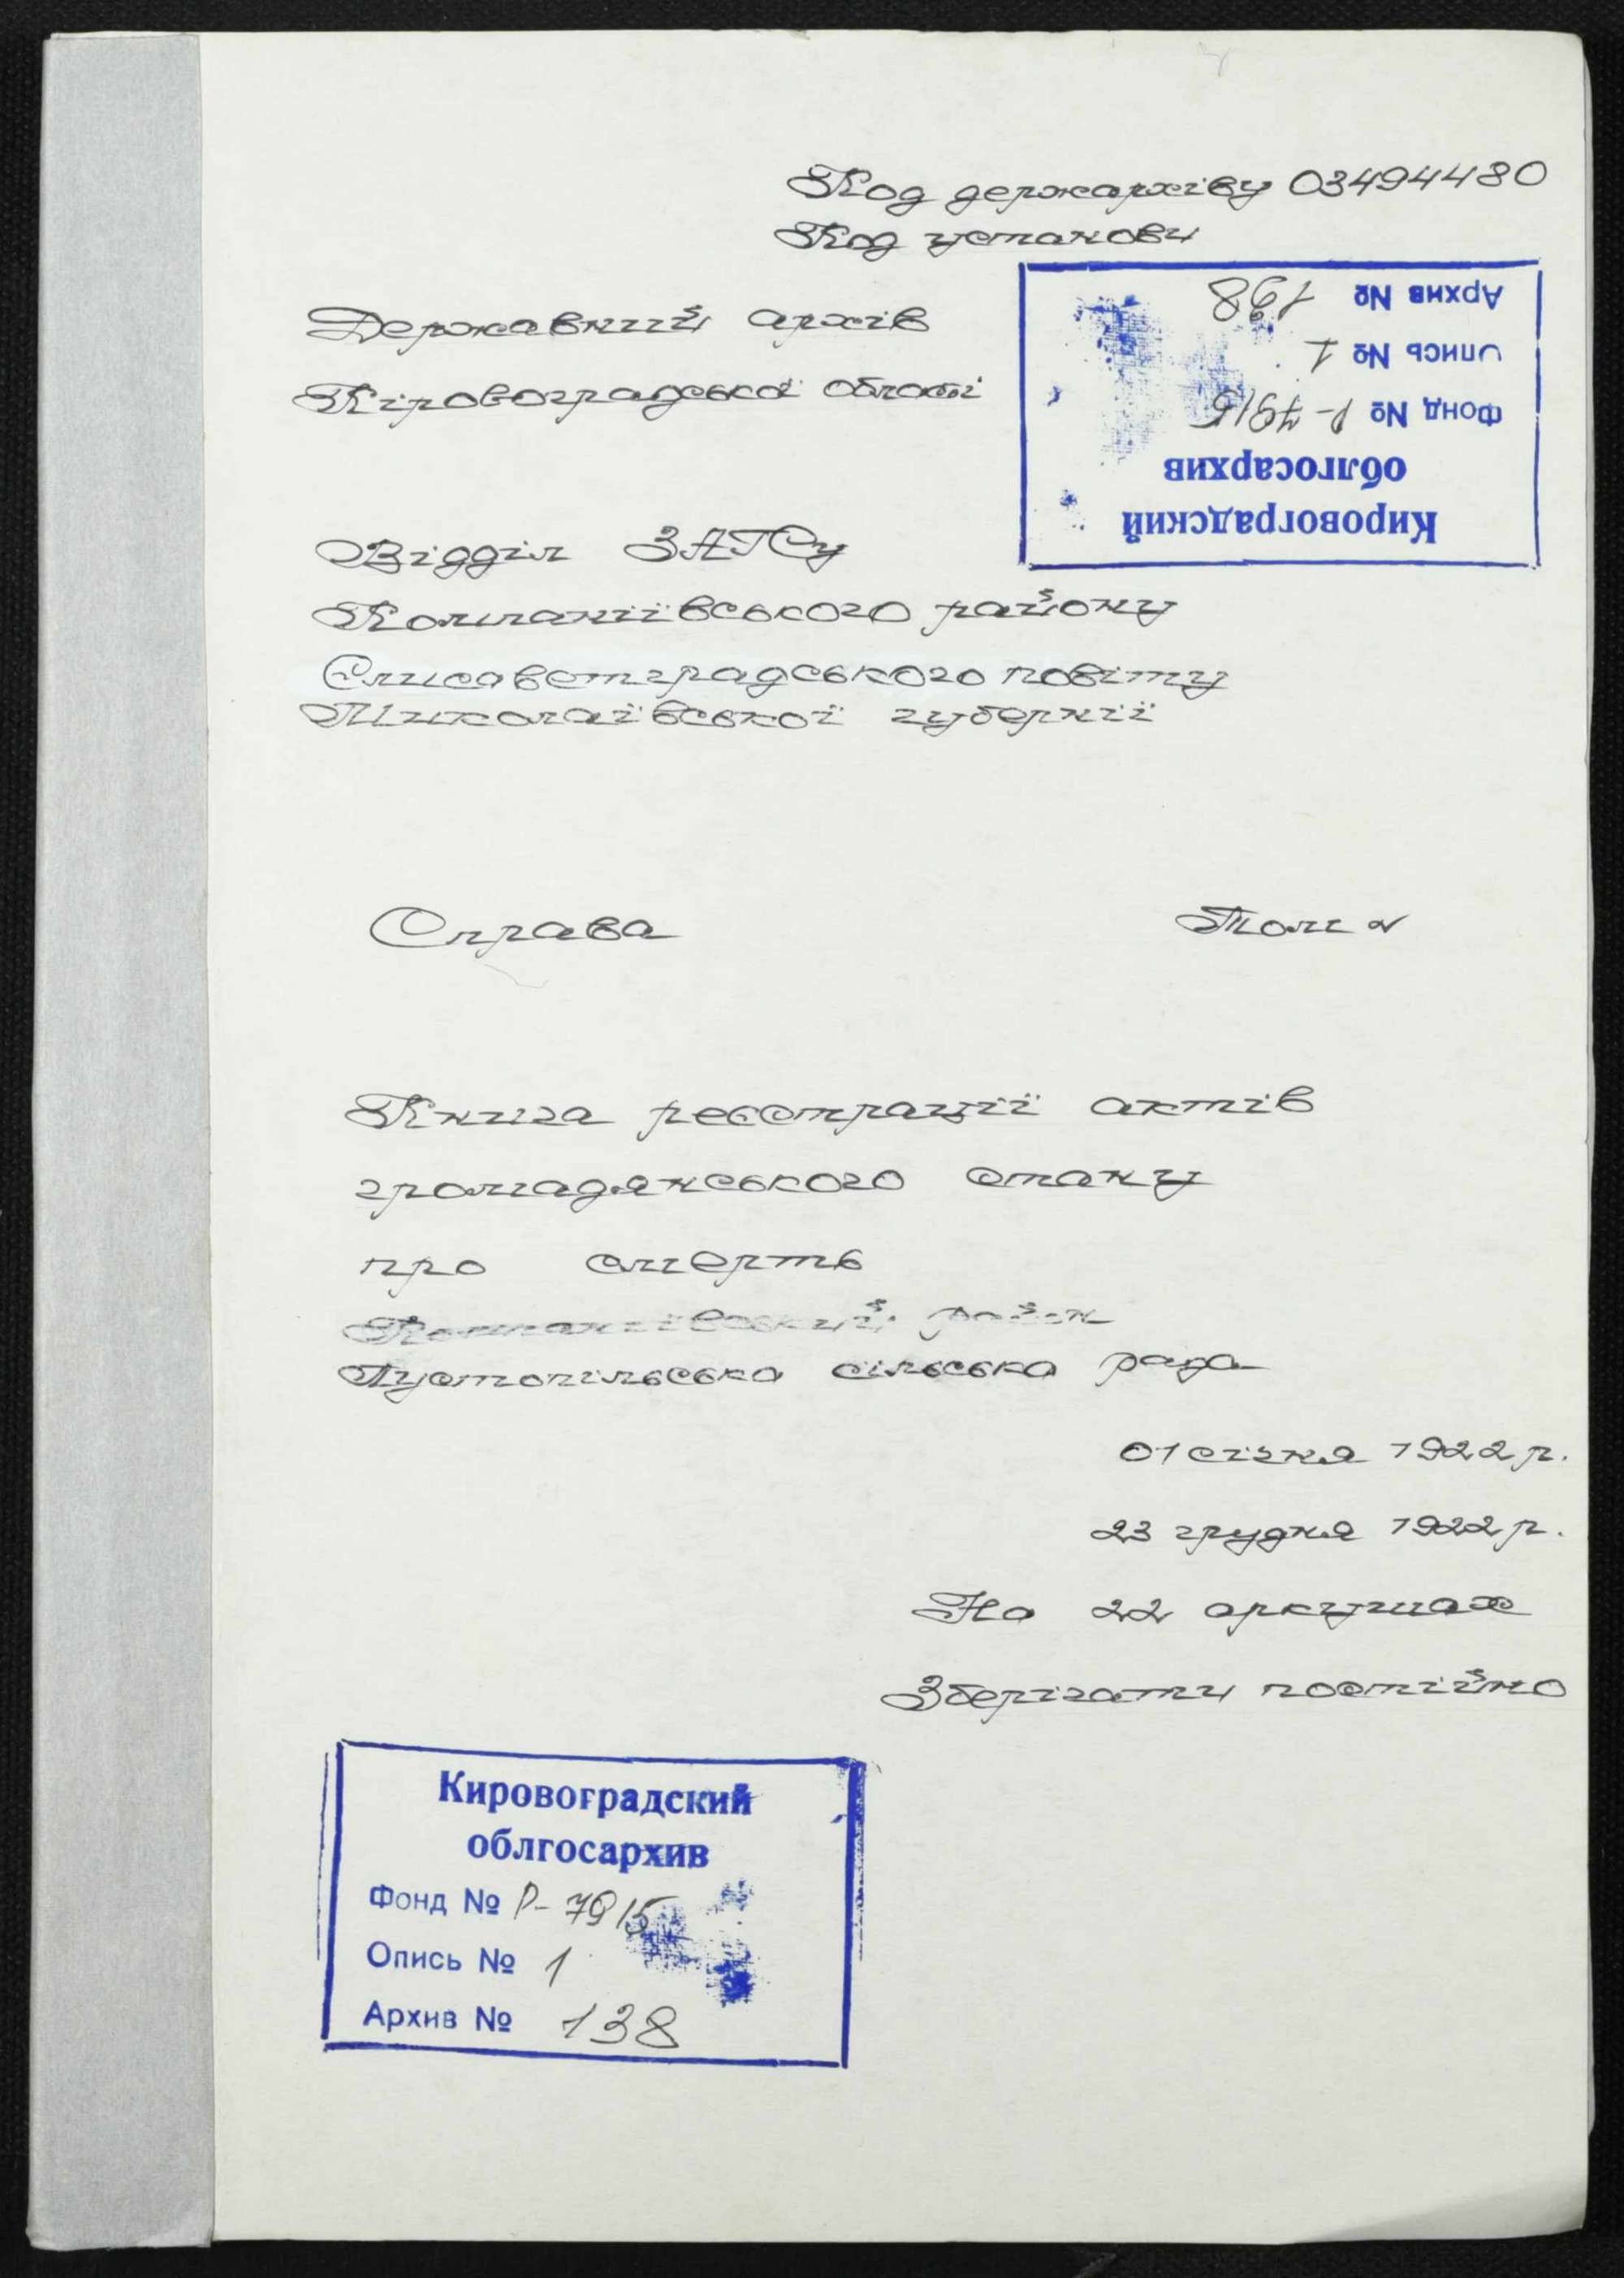 Код держархіву 03494480
Код установи
Державний архів
Кіровоградської області
Кировоградский
облгосархив
Фонд № Р-7915
Опись № 1
Архив №
Відділ ЗАГСу
Компаніївського району
Єлисаветградського повіту
Миколаївської губернії
Справа
Том №
Книга реєстрації актів
громадянського стану
про смерть
Компаніївський район
Пустопільська сільська рада
01 січня 1922 р.
23 грудня 1922 р.
На 22 аркушах
Зберігати постійно
Кировоградский
облгосархив
Фонд № Р-7915
Опись № 1
Архив № 138